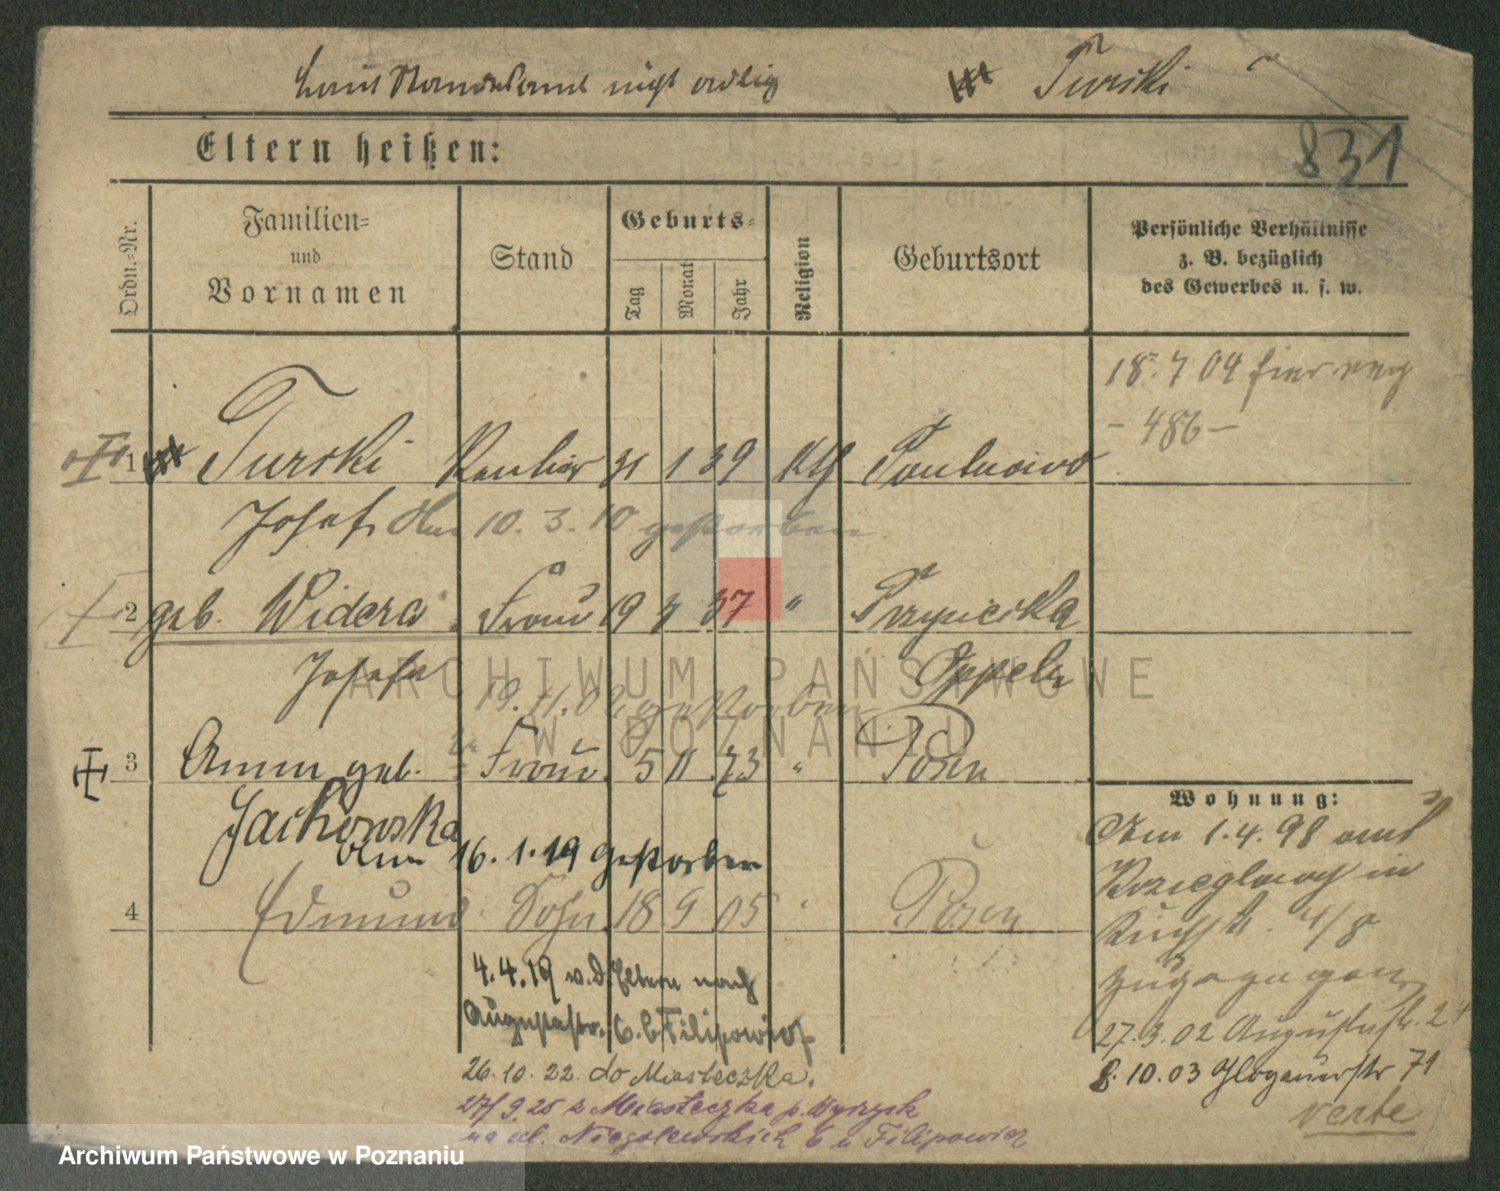 Laut Standesamt nicht adlig Turski
831
Eltern heißen:
Ordn.-Nr. Familien- und Vornamen Stand Geburts- Tag Monat Jahr Religion Geburtsort Persönliche Verhältnisse z. B. bezüglich des Gewerbes u. s. w.
18.7 04 hier
- 486 -
1 Turski Rentier 31 1 39 Kth
Josef 10. 3. 10 gestorben
2 geb. Widera Frau 19 3 37 "
Josefa Oppeln
19. 11. gestorben
3 Anna geb. Frau 5 11 73 " Posen
Jackowska
16. 1. 19 gestorben
4 Edmund Sohn 18 9 05 " Posen
4. 4. 19 v. d. Eltern nach
Augustastr. 6. b Filipowicz
26. 10. 22. do Miasteczka.
27/9. 25 z Miasteczka p. Wyrzysk
na ul. Niegolewskich 6 u Filipowicz
Wohnung:
Am 1. 4. 98 aus
in
4/8
zugezogen
27. 3. 02 Augustastr. 24
8. 10. 03 Glogauerstr 71
verte
ARCHIWUM PAŃSTWOWE
W POZNANIU
Archiwum Państwowe w Poznaniu